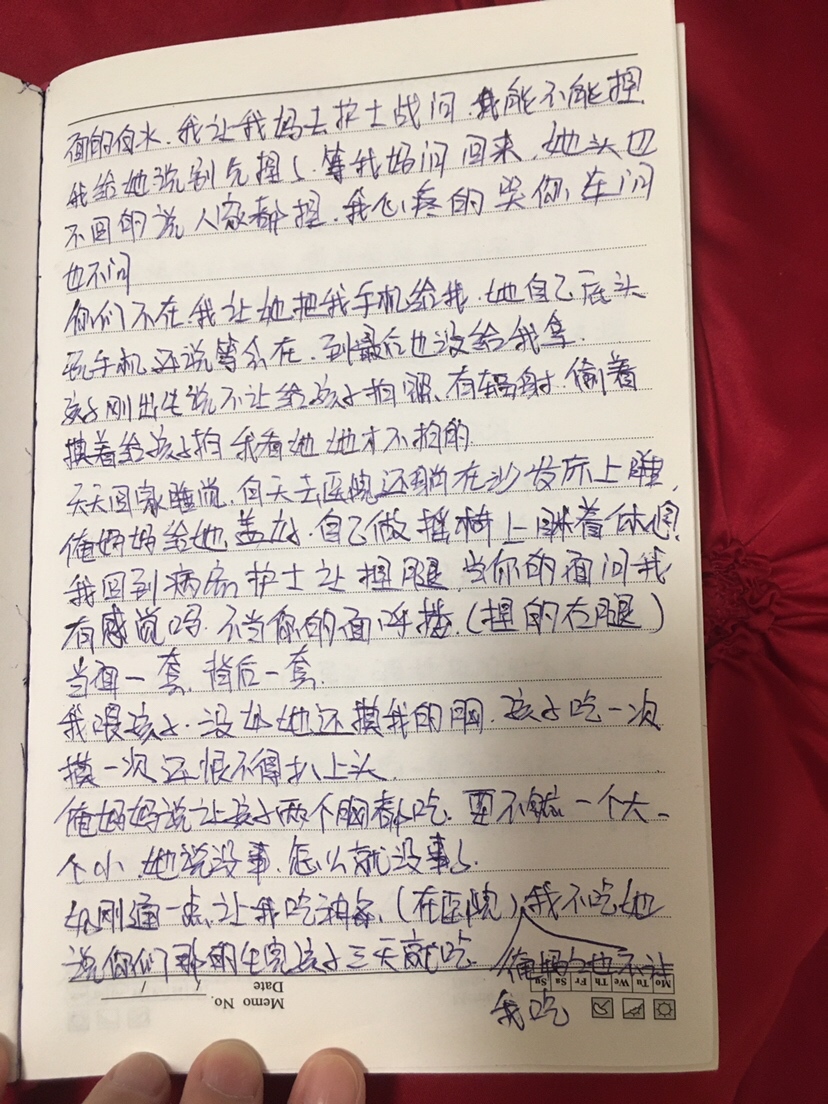 面的白水.我让我妈去护士战问.我能不能捏
我给她说别先捏了.等我妈问回来.她头也
不回的说人家都捏.我心疼的哭你在问
也不问
你们不在.我让她把我手机给我.她自己底头
玩手机还说等会在.到最后也没给我拿.
孩子刚出生说不让给孩子拍照、有辐射.偷着
摸着给孩子拍我看她她才不拍的
天天回家睡觉.白天去医院还躺在沙发床上睡,
俺妈妈给她盖衣.自己做摇椅上眯着休息!
我回到病房护士让捏腿.当你的面问我
有感觉吗.不当你的面.(捏的右腿)
当面一套.背后一套.
我喂孩子.没本她还摸我的胸.孩子吃一次
摸一次还恨不得扒上头.
俺妈妈说让孩子两个胸都吃.要不然一个大一
个小.她说没事.怎么就没事了.
奶刚通一点.让我吃油条.(在医院)我不吃她
说你们那的生完孩子三天就吃. 俺妈妈也不让
我吃
Memo No.
Date / /
Mo Tu We Th Fr Sa Su